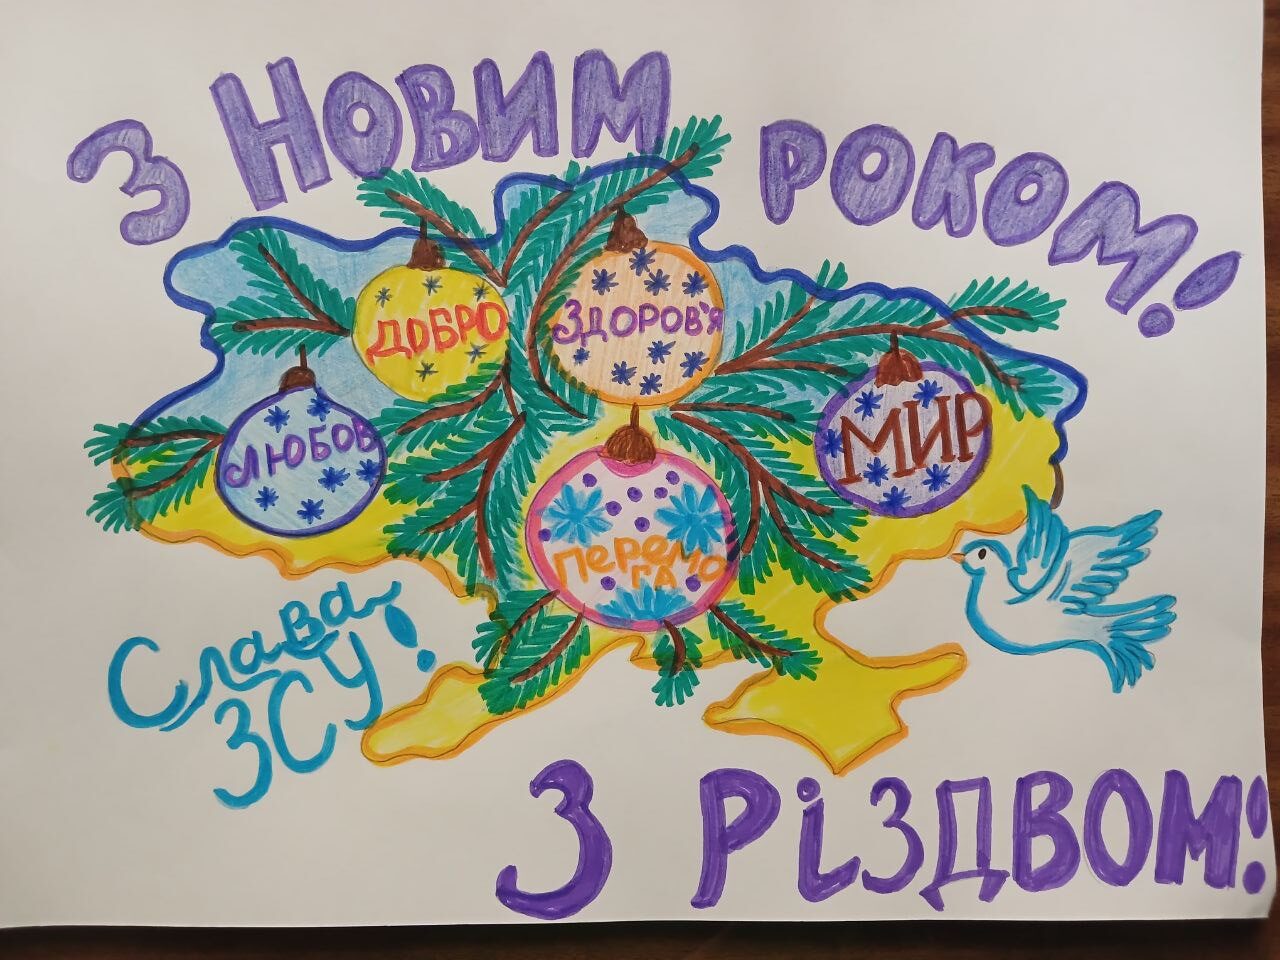 З НОВИМ РОКОМ!
ДОБРО
ЗДОРОВ'Я
ЛЮБОВ
МИР
ПЕРЕМО
ГА
Слава
ЗСУ!
З РіЗДВОМ!